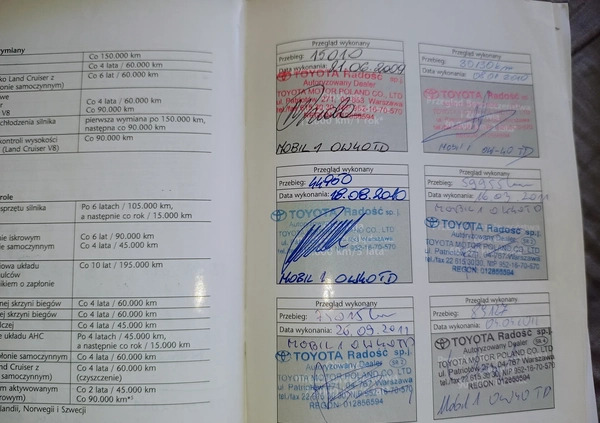 wymiany
Co 150.000 km
Co 4 lata / 60.000 km
ko Land Cruiser z
onie samoczynnym)
Co 6 lat / 60.000 km
owe
Co 4 lata / 60.000 km
V8
Co 90.000 km
chłodzenia silnika
pierwsza wymiana po 150.000 km,
następna co 90.000 km
kontroli wysokości
(Land Cruiser V8)
Co 90.000 km
role
sprzętu silnika
Po 6 latach / 105.000 km,
a następnie co rok / 15.000 km
onie iskrowym
Co 6 lat / 90.000 km
onie samoczynnym
Co 4 lata / 45.000 km
owa układu
Co 10 lat / 195.000 km
ulców
nikiem o zapłonie
nej skrzyni biegów
Co 4 lata / 60.000 km
nej skrzyni biegów
Co 4 lata / 60.000 km
dczej
Co 4 lata / 45.000 km
e układu AHC
Po 4 latach / 45.000 km,
a następnie co rok / 15.000 km
płonie samoczynnym
Co 4 lata / 60.000 km
nd Cruiser z
Co 4 lata / 60.000 km
(czyszczenie)
m aktywowanym
Co 2 lata / 45.000 km
krowym)
Co 90.000 km*³
landii, Norwegii i Szwecji
Przegląd wykonany
Przebieg: 15010
Data wykonania: 21.08.2009
TOYOTA Radość sp.j.
Autoryzowany Dealer
TOYOTA MOTOR POLAND CO., LTD
ul. Patriotów 271, 04-767 Warszawa
MOBIL 1 0W40TD
Przegląd wykonany
Przebieg: 30130km
Data wykonania: 08.01.2010
TOYOTA Radość sp.j.
Mobil 1 0W-40 TD
Przegląd wykonany
Przebieg: 44960
Data wykonania: 18.08.2010
TOYOTA Radość sp.j.
Autoryzowany Dealer
TOYOTA MOTOR POLAND CO., LTD
MOBIL 1 0W40TD
Przegląd wykonany
Przebieg: 59955km
Data wykonania: 16.03.2011
MOBIL 1 0W40TD
TOYOTA Radość sp.j.
Autoryzowany Dealer
TOYOTA MOTOR POLAND CO., LTD
ul. Patriotów 271, 04-767 Warszawa
REGON: 012856594
Przegląd wykonany
Przebieg: 75015km
Data wykonania: 26.09.2011
MOBIL 1 0W40TD
TOYOTA Radość sp.j.
Autoryzowany Dealer
TOYOTA MOTOR POLAND CO., LTD
ul. Patriotów 271, 04-767 Warszawa
REGON: 012856594
Przegląd wykonany
Przebieg:
Data wykonania:
TOYOTA Radość sp.j.
Autoryzowany Dealer
TOYOTA MOTOR POLAND CO., LTD
ul. Patriotów 271, 04-767 Warszawa
REGON: 012856594
Mobil 1 0W40 TD